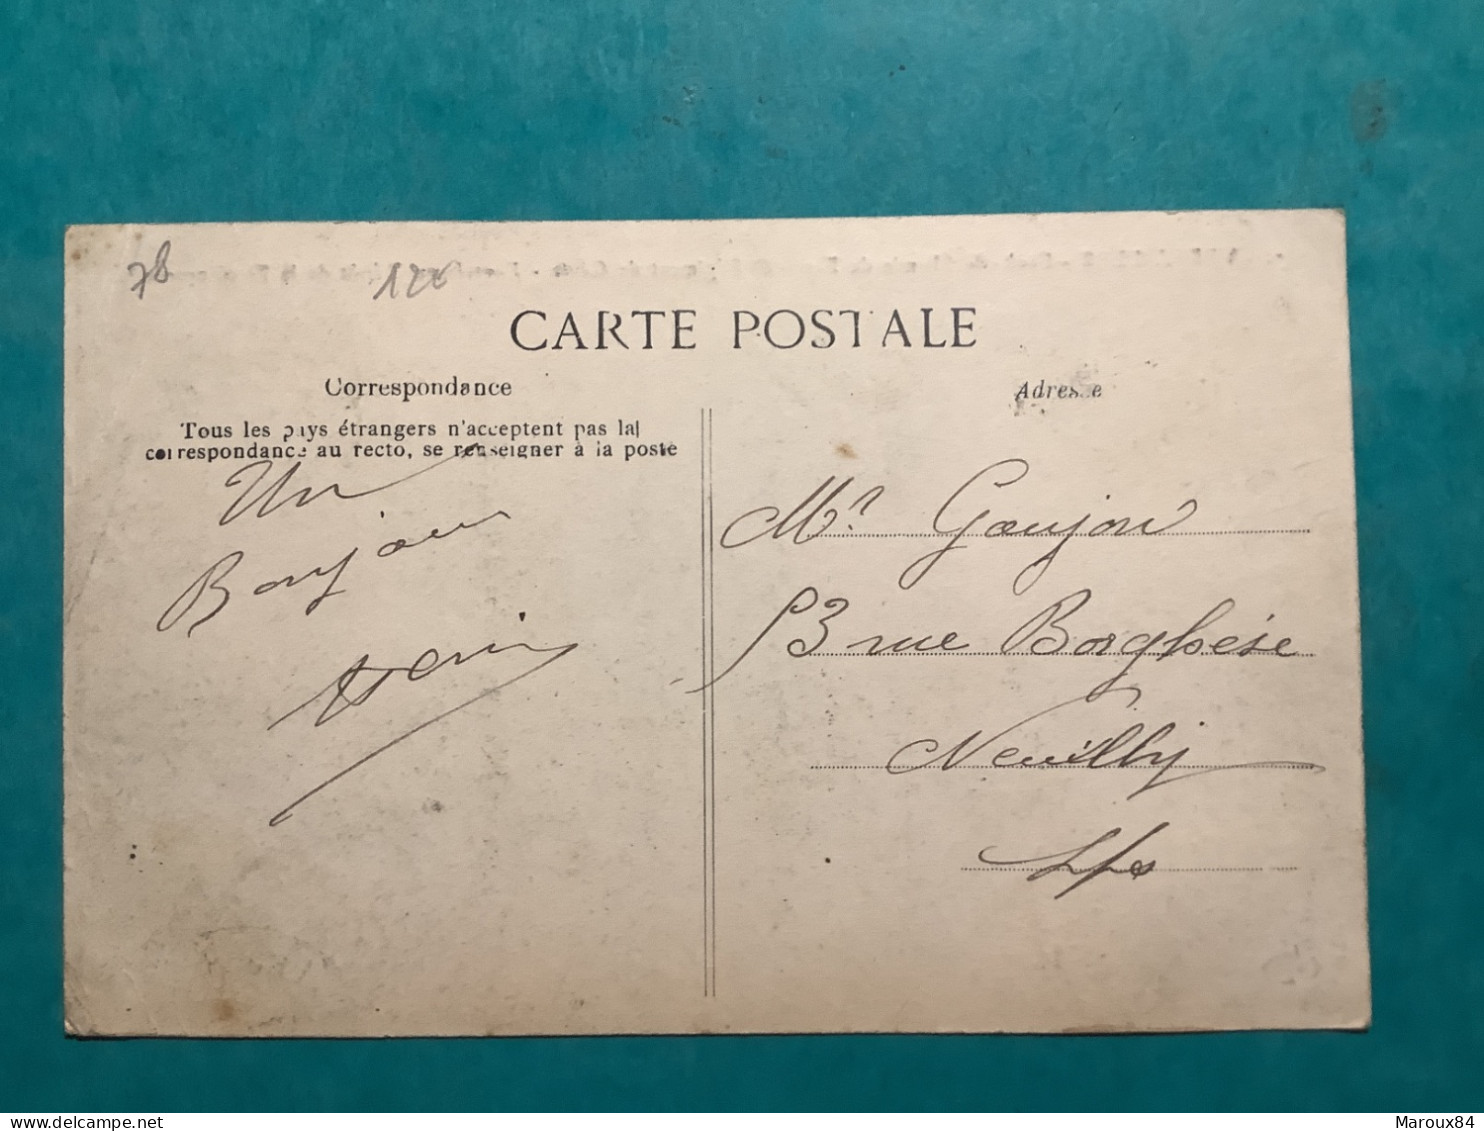 78
CARTE POSTALE
Correspondance
Tous les pays étrangers n'acceptent pas la
correspondance au recto, se renseigner à la poste
Un
Bonjour
Henri
Adresse
Mr. Goujon
53 rue Borghèse
Neuilly
s/s
Maroux84